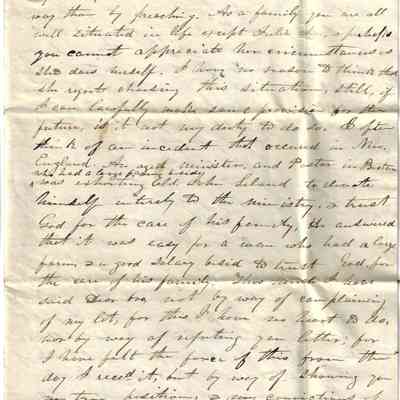 way than by preaching. As a family you are all
well situated in life except Julia & perhaps
you cannot appreciate her circumstances as
she does herself. I have no reason to think that
she regrets choosing this situation, still, if
I can lawfully make some provision for the
future, is it not my duty to do so. I often
think of an incident that occured in New
England. An aged minister, and Pastor in Boston
who had a large farm, besides
was exhorting Old John Leland to devote
himself entirely to the ministry, & trust
God for the care of his family. He answered
that it was easy for a man who had a large
farm, & a good salary besid to trust God for
the care of his family. Thus much I have
said Dear bro not by way of complaining
of my lot, for this I have no heart to do,
nor by way of your letter; for
I have felt the force of this from the
day I recd it, but by way of showing you
my true position, & my convictions of